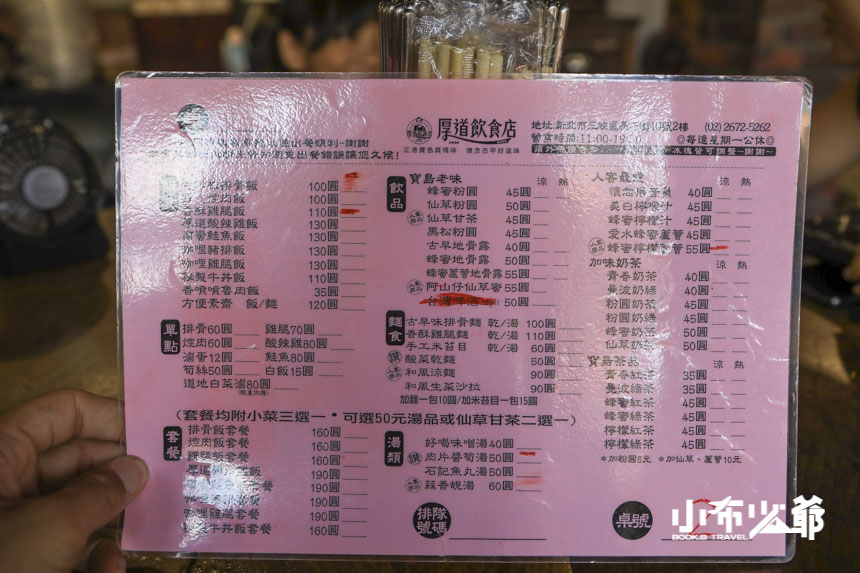 厚道飲食店
正港寶島真情味 懷念古早好滋味
(02) 2672-5262
營業時間:11:00-19:30
◎每週星期一公休◎
排骨飯 100圓
焢肉飯 100圓
香酥雞腿飯 110圓
厚道酸辣雞飯 130圓
鮭魚飯 130圓
咖哩豬排飯 130圓
咖哩雞腿飯 130圓
牛丼飯 110圓
香噴噴魯肉飯 35圓
方便素齋 飯/麵 120圓
單點
排骨60圓 雞腿70圓
焢肉60圓 酸辣雞80圓
滷蛋12圓 鮭魚80圓
筍絲50圓 白飯15圓
道地白菜滷80圓
(限量供應)
飲品
寶島老味 涼 熱
蜂蜜粉圓 45圓
仙草粉圓 50圓
仙草甘茶 45圓
黑松粉圓 45圓
古早地骨露 40圓
蜂蜜地骨露 50圓
蜂蜜蘆薈地骨露 55圓
阿山仔仙草蜜 55圓
50圓
麵食
古早味排骨麵 乾/湯 100圓
香酥雞腿麵 乾/湯 110圓
手工米苔目 乾/湯 60圓
酸菜乾麵 50圓
和風涼麵 90圓
和風生菜沙拉 90圓
加麵一包10圓/加米苔目一包15圓
涼 熱
40圓
美白檸檬汁 45圓
蜂蜜檸檬汁 45圓
愛水蜂蜜蘆薈 45圓
蜂蜜檸檬蘆薈 55圓
加味奶茶 涼 熱
青春奶茶 40圓
曼波奶綠 40圓
粉圓奶茶 45圓
粉圓奶綠 45圓
蜂蜜奶茶 50圓
仙草奶茶 50圓
寶島茶品 涼 熱
青春紅茶 35圓
曼波綠茶 35圓
蜂蜜紅茶 45圓
蜂蜜綠茶 45圓
檸檬紅茶 45圓
檸檬綠茶 45圓
*加粉圓5元 *加仙草、蘆薈10元
(套餐均附小菜三選一*可選50元湯品或仙草甘茶二選一)
套餐
排骨飯套餐 160圓
焢肉飯套餐 160圓
雞腿飯套餐 160圓
190圓
190圓
190圓
咖哩雞飯套餐 190圓
牛丼飯套餐 160圓
湯類
好喝味噌湯40圓
肉片醬筍湯50圓
石記魚丸湯50圓
蒜香蜆湯 60圓
排隊號碼
桌號
小布少爺
BOOK.S TRAVEL